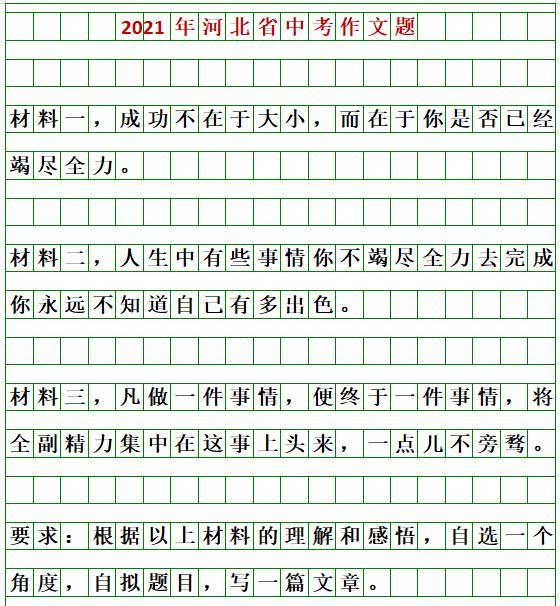 2021年河北省中考作文题
材料一，成功不在于大小，而在于你是否已经
竭尽全力。
材料二，人生中有些事情你不竭尽全力去完成
你永远不知道自己有多出色。
材料三，凡做一件事情，便终于一件事情，将
全副精力集中在这事上头来，一点儿不旁骛。
要求：根据以上材料的理解和感悟，自选一个
角度，自拟题目，写一篇文章。